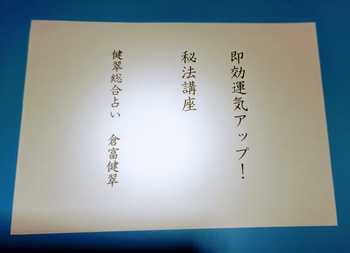 即効運気アップ！
秘法講座
健翠総合占い　倉富健翠